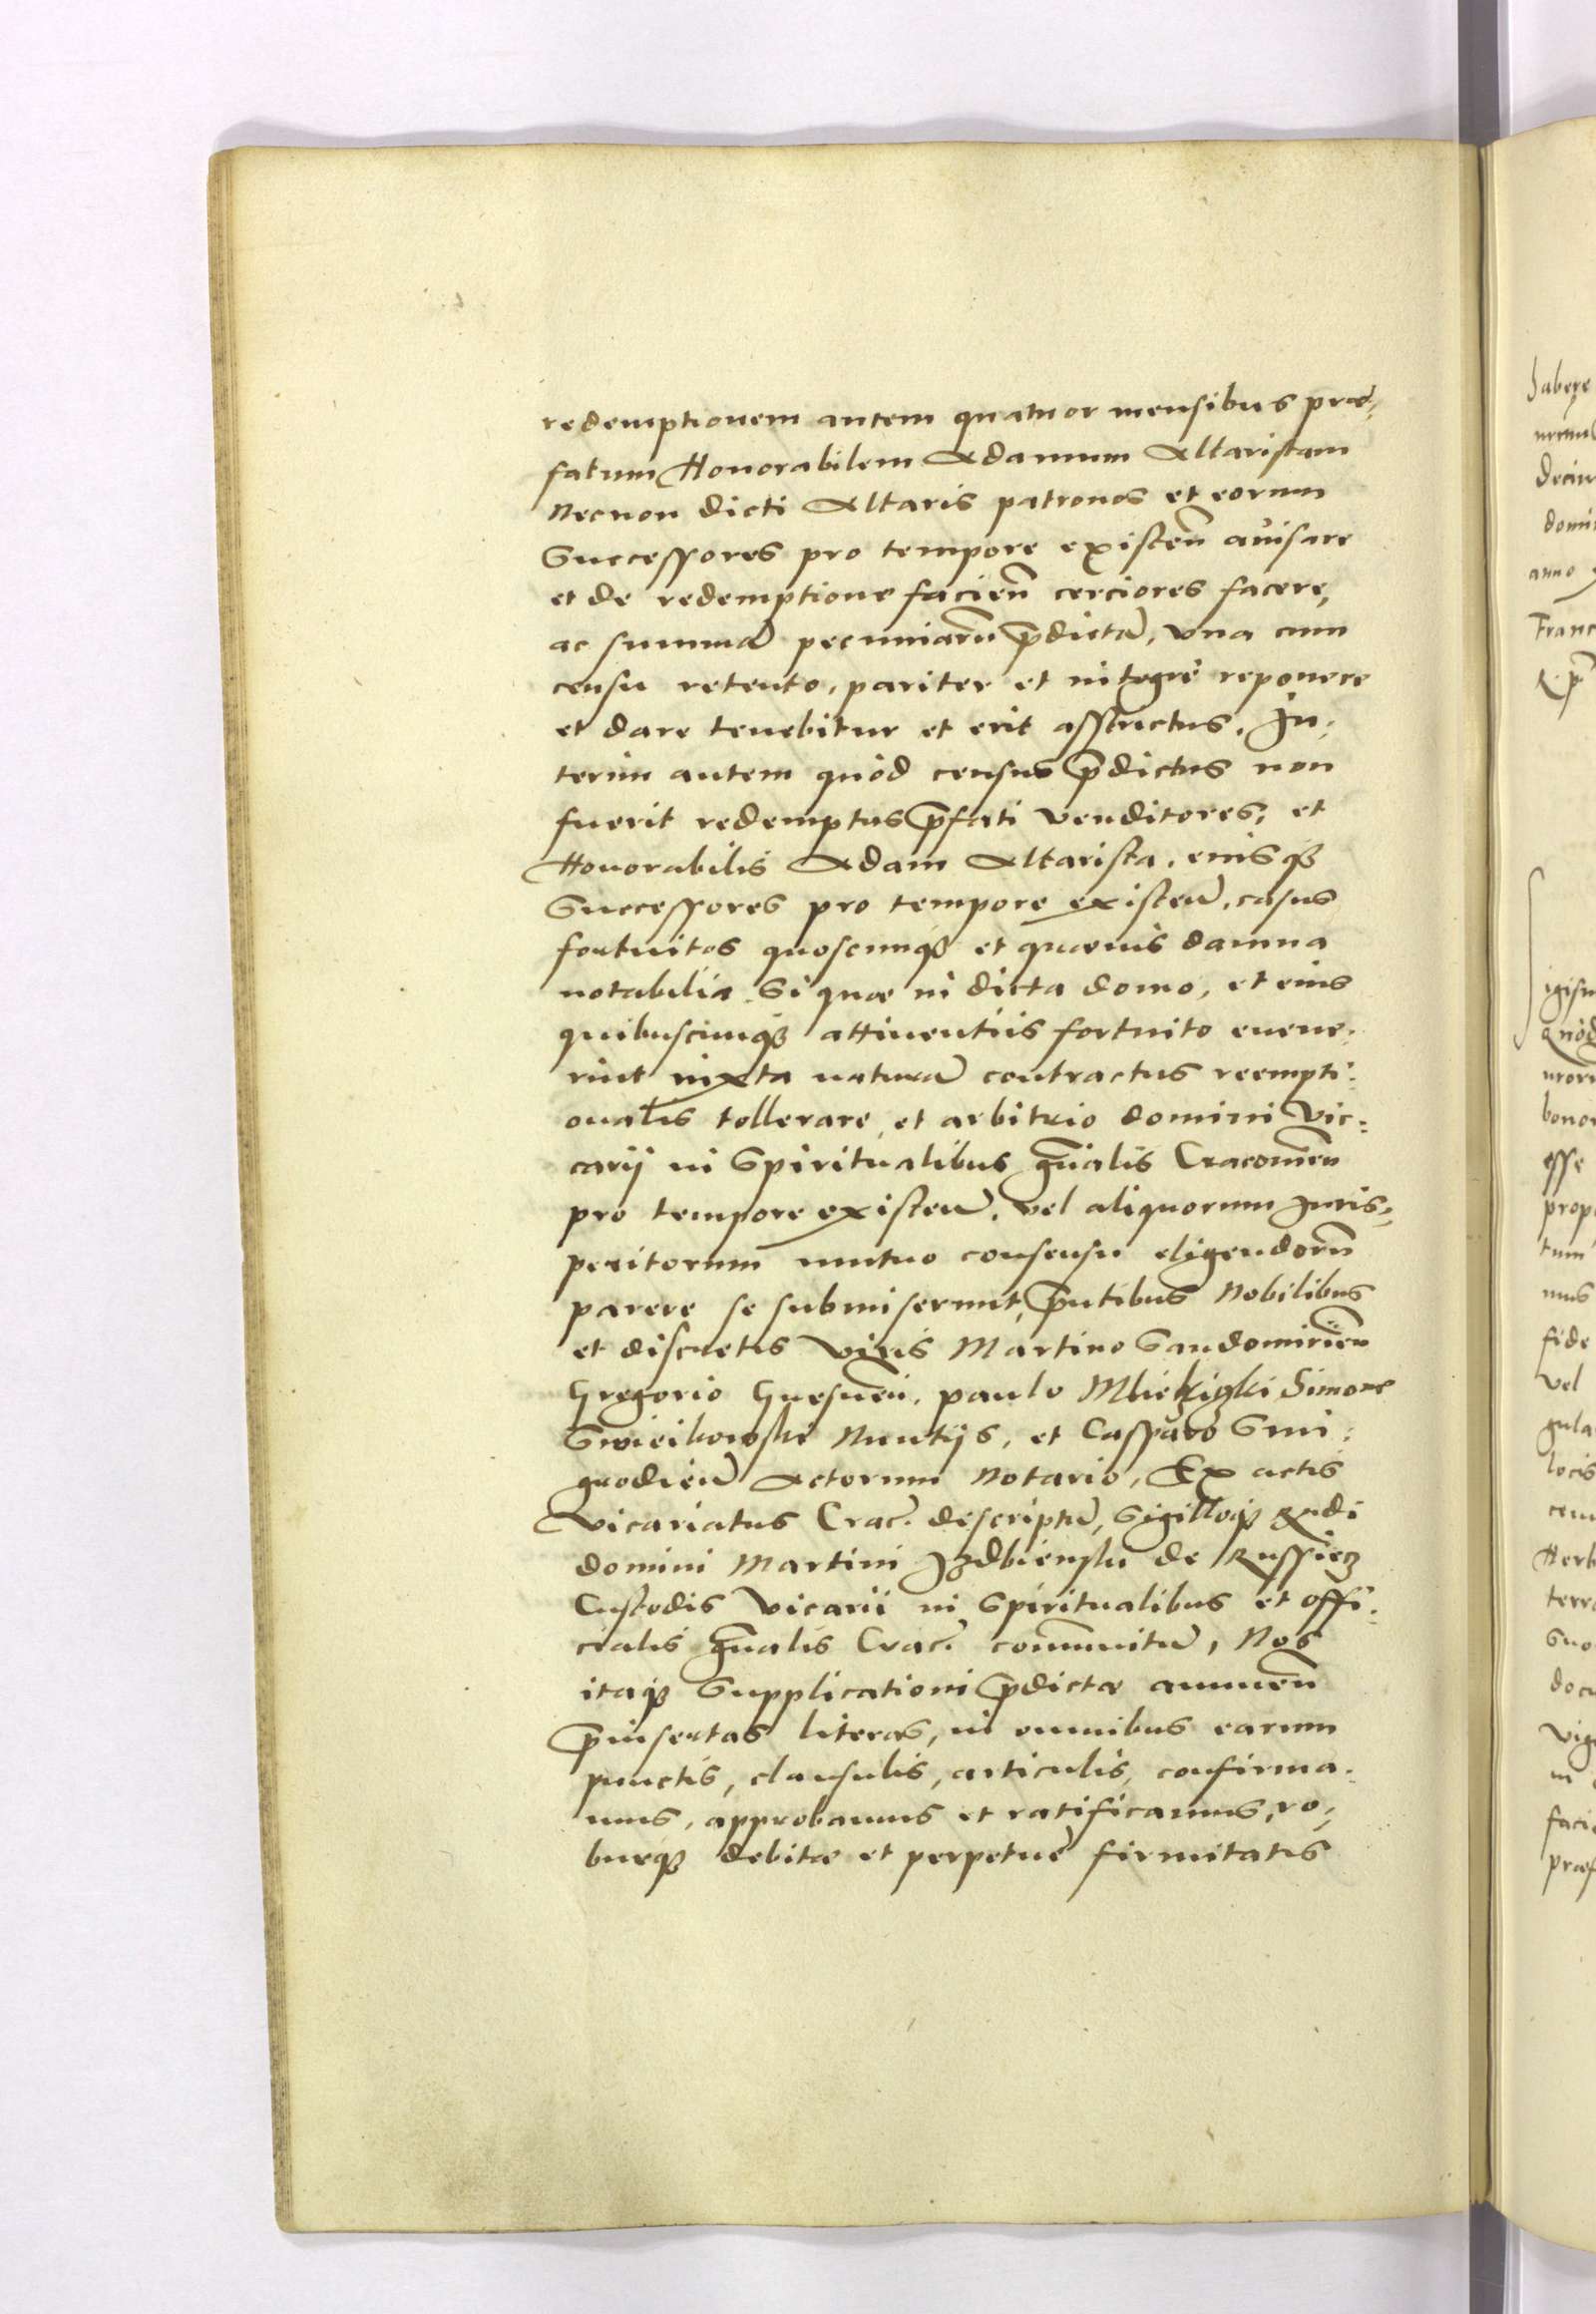 redemptionem autem quatuor mensibus præ-
fatum Honorabilem Adamum Altaristam
Necnon dicti Altaris patronos et eorum
Successores pro tempore existeñ auisare
et de redemptione facieñ cerciores facere,
ac summã pecuniarũ p̃dictã, vna cum
censu retento, pariter et integrè reponere
et dare tenebitur et erit asstrictus. In-
terim autem quòd census p̃dictus non
fuerit redemptus p̃fati venditores, et
Honorabilis Adam Altarista, eiusqȝ
Successores pro tempore existeñ, casus
fortuitos quoscumqȝ et quæuis damna
notabilia si quæ in dicta domo, et eius
quibuscumqȝ attinentiis fortuito euene-
rint iuxta naturã contractus reempti-
onalis tollerare, et arbitrio domini Vic-
carij in Spiritualibus gñalis Cracouieñ
pro tempore existeñ, vel aliquorum Juris-
peritorum mutuo consensu eligendorũ
parere se submiserunt, p̃ntibus Nobilibus
et discretis viris Martino Sandomirieñ
Gregorio Gnesneñ, paulo Simone
Nuntijs, et Casparo Sni-
grodieñ Actorum Notario, Ex actis
vicariatus Crac̃. descriptũ, Sigilloqȝ Rñdi
domini Martini Izdbienski de Russiecz
Custodis vicarii in Spiritualibus et offi-
cialis gñalis Crac̃. communitũ, Nos
itaqȝ Supplicationi p̃dictæ annueñ
p̃insertas literas, in omnibus earum
punctis, clausulis, articulis, confirma-
mus, approbamus et ratificamus, ro-
burqȝ debitæ et perpetuè firmitatis